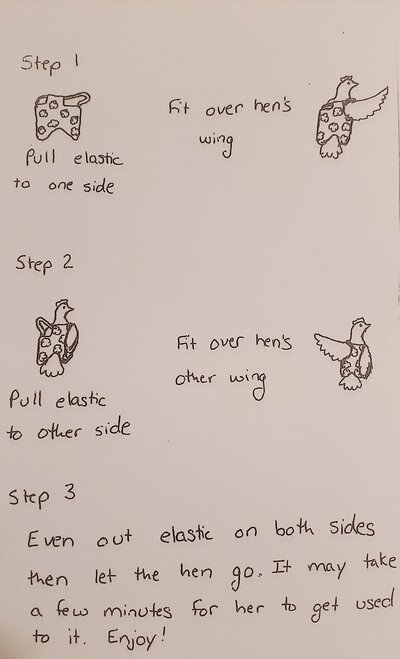 Step 1
Pull elastic
to one side
Fit over hen's
wing
Step 2
Pull elastic
to other side
Fit over hen's
other wing
Step 3
Even out elastic on both sides
then let the hen go. It may take
a few minutes for her to get used
to it. Enjoy!